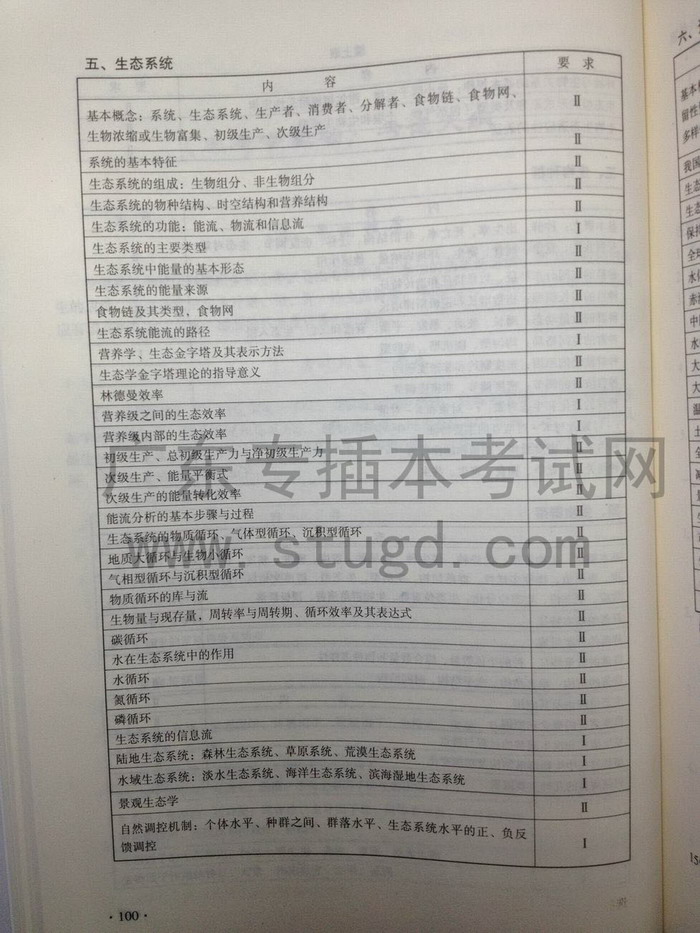 五、生态系统
内 容 要 求
基本概念：系统、生态系统、生产者、消费者、分解者、食物链、食物网、 Ⅱ
生物浓缩或生物富集、初级生产、次级生产
系统的基本特征 Ⅱ
生态系统的组成：生物组分、非生物组分 Ⅱ
生态系统的物种结构、时空结构和营养结构 Ⅱ
生态系统的功能：能流、物流和信息流 Ⅱ
生态系统的主要类型 Ⅰ
生态系统中能量的基本形态 Ⅱ
生态系统的能量来源 Ⅱ
食物链及其类型，食物网 Ⅱ
生态系统能流的路径 Ⅱ
营养学、生态金字塔及其表示方法 Ⅰ
生态学金字塔理论的指导意义 Ⅱ
林德曼效率 Ⅱ
营养级之间的生态效率 Ⅰ
营养级内部的生态效率 Ⅰ
初级生产、总初级生产力与净初级生产力 Ⅱ
次级生产、能量平衡式 Ⅱ
次级生产的能量转化效率 Ⅱ
能流分析的基本步骤与过程 Ⅱ
生态系统的物质循环、气体型循环、沉积型循环 Ⅱ
地质大循环与生物小循环 Ⅱ
气相型循环与沉积型循环 Ⅱ
物质循环的库与流 Ⅱ
生物量与现存量，周转率与周转期、循环效率及其表达式 Ⅱ
碳循环 Ⅱ
水在生态系统中的作用 Ⅱ
水循环 Ⅱ
氮循环 Ⅱ
磷循环 Ⅱ
生态系统的信息流 Ⅰ
陆地生态系统：森林生态系统、草原系统、荒漠生态系统 Ⅰ
水域生态系统：淡水生态系统、海洋生态系统、滨海湿地生态系统 Ⅰ
景观生态学 Ⅱ
自然调控机制：个体水平、种群之间、群落水平、生态系统水平的正、负反 Ⅰ
馈调控
·100·
广东专插本考试网
www.stugd.com
六、
基本
多样
我国
生态
生态
保护
全球
水体
中国
水
大
大
温
土